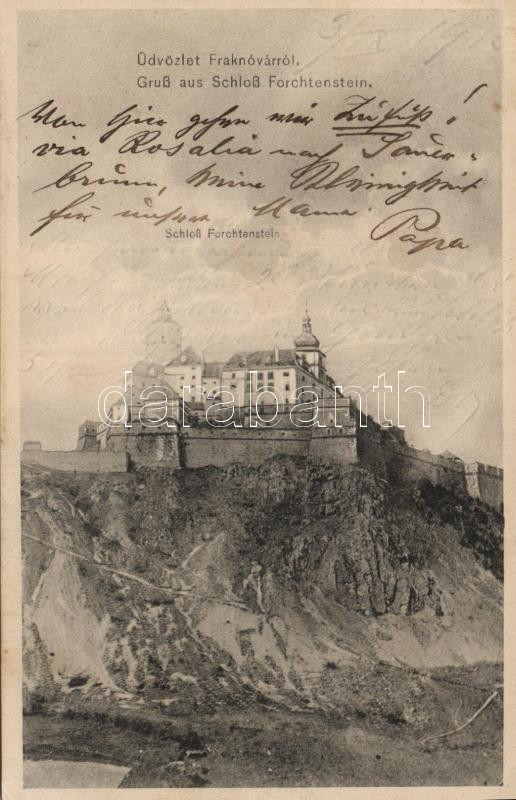 Üdvözlet Fraknóvárról.
Gruß aus Schloß Forchtenstein.
Von hier gehen wir Zufuß!
via Rosalia nach Sauer-
brunn, keine
für unsere Mama.
Papa
Schloß Forchtenstein
darabanth.com